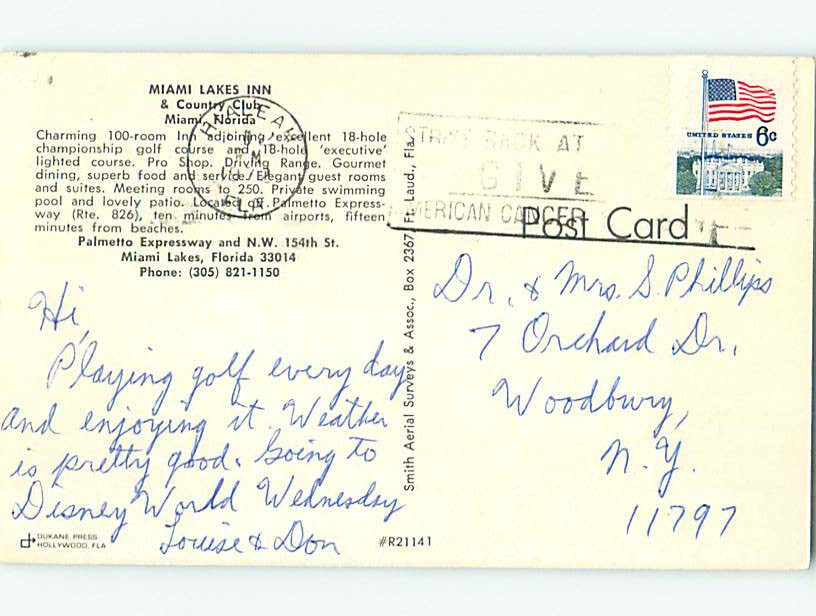 MIAMI LAKES INN
& Country Club
Miami, Florida
Charming 100-room Inn adjoining excellent 18-hole
championship golf course and 18-hole 'executive'
lighted course. Pro Shop. Driving Range. Gourmet
dining, superb food and service. Elegant guest rooms
and suites. Meeting rooms to 250. Private swimming
pool and lovely patio. Located off Palmetto Express-
way (Rte. 826), ten minutes from airports, fifteen
minutes from beaches.
Palmetto Expressway and N.W. 154th St.
Miami Lakes, Florida 33014
Phone: (305) 821-1150
Hi,
Playing golf every day
and enjoying it. Weather
is pretty good. Going to
Disney World Wednesday
Louise & Don
DUKANE PRESS
HOLLYWOOD, FLA
#R21141
Smith Aerial Surveys & Assoc., Box 2367, Ft. Laud., Fla.
HIALEAH
PM
FLA
STRIKE BACK AT
GIVE
AMERICAN CANCER
UNITED STATES 6c
Post Card
Dr. & Mrs. S. Phillips
7 Orchard Dr.
Woodbury,
N.Y.
11797